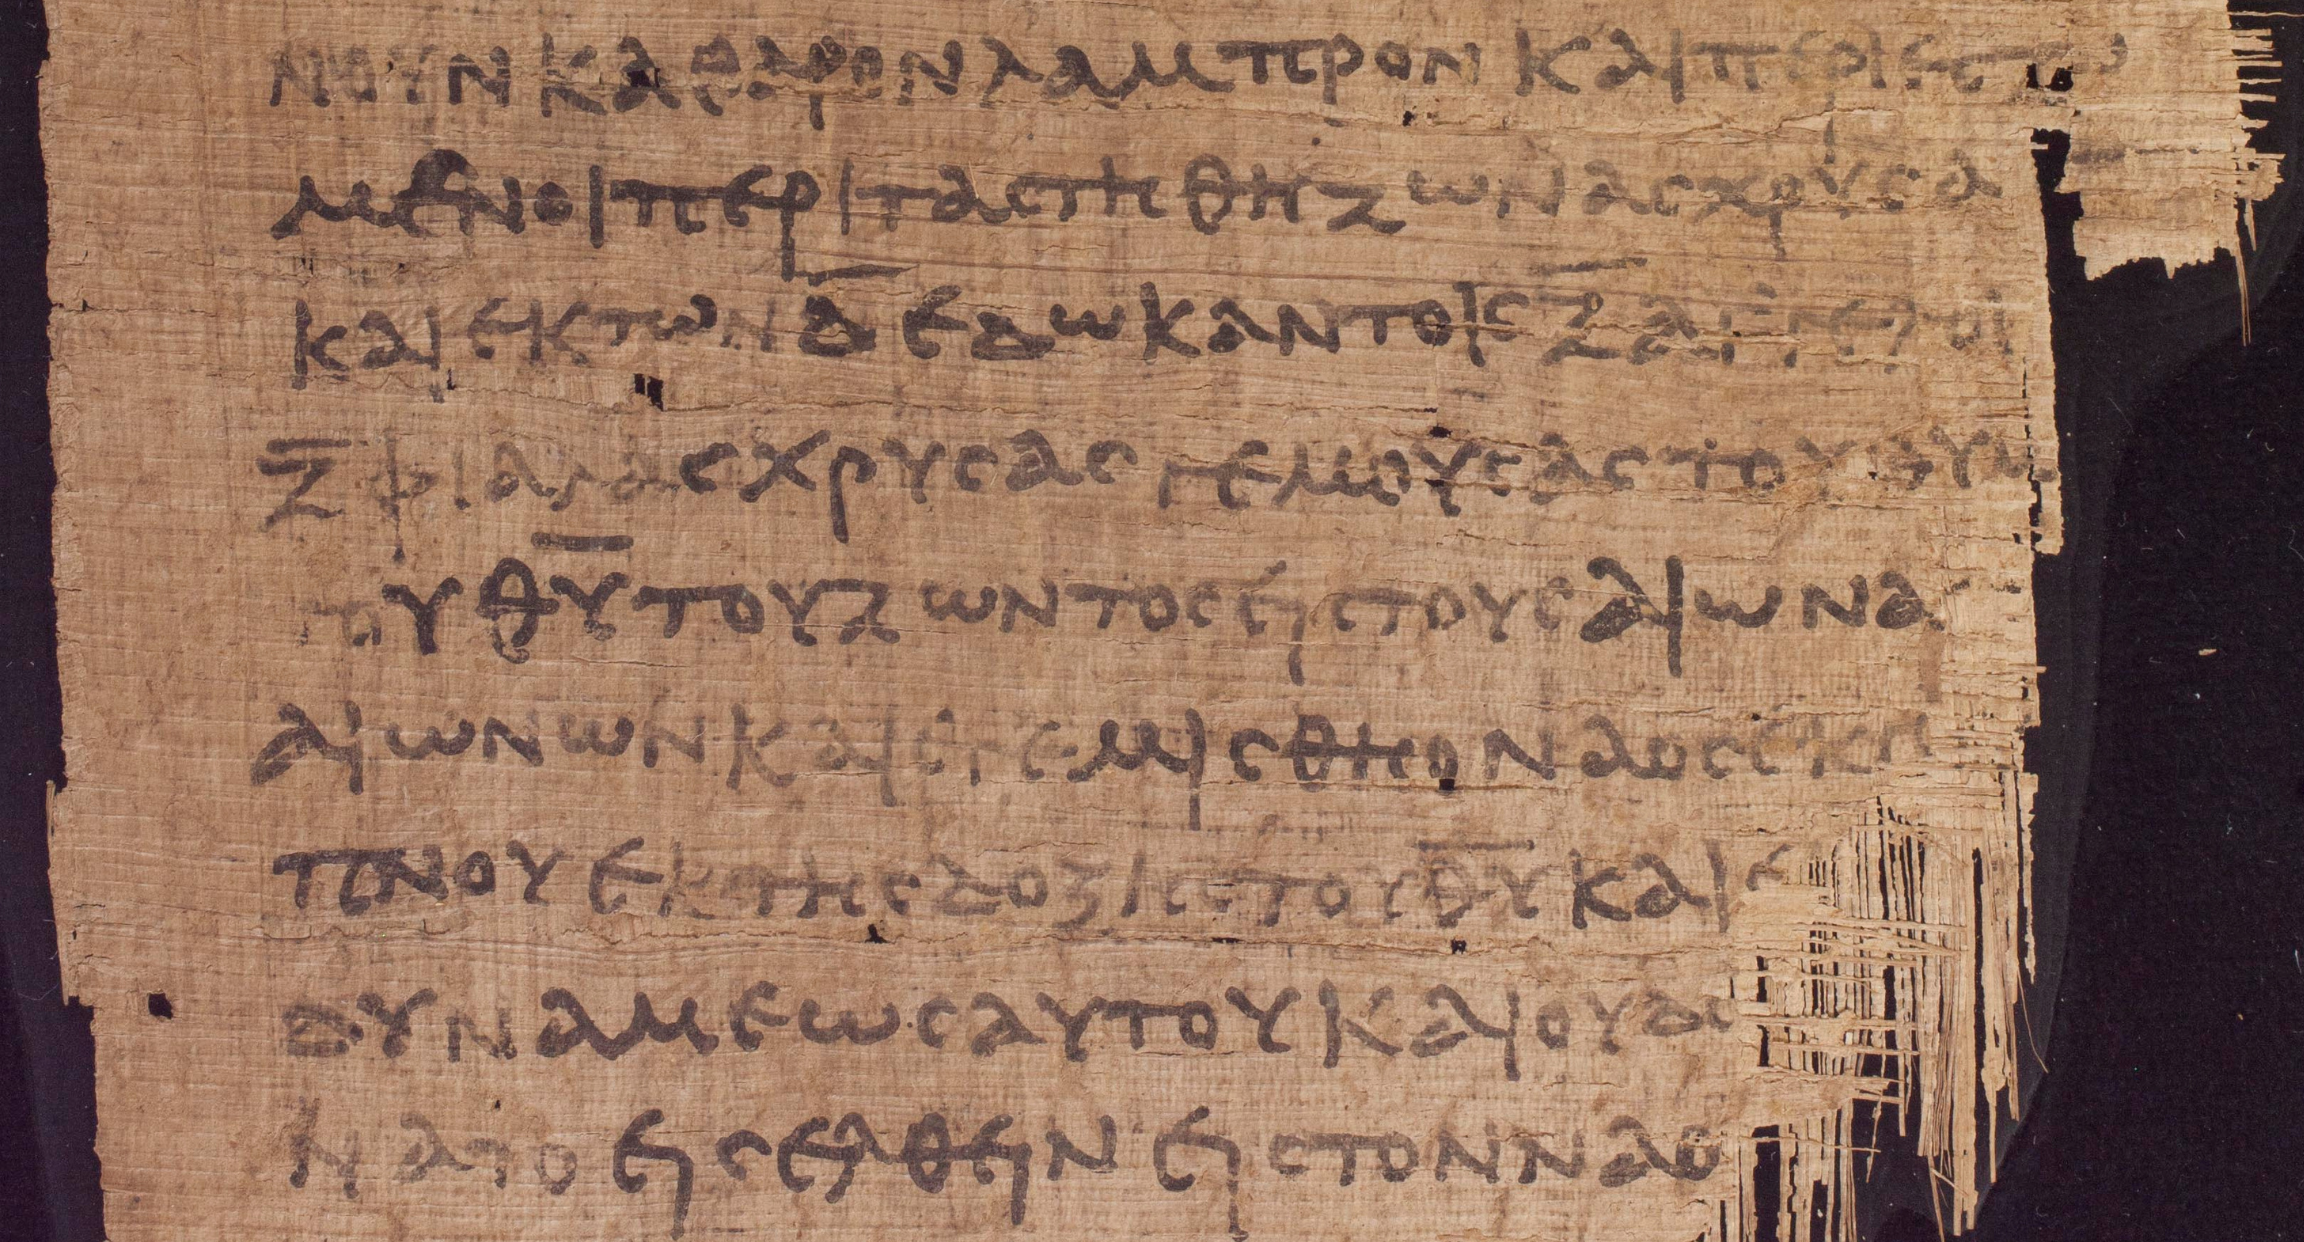 νουν καθαρον λαμπρον και περιεζω
μενοι περι τα ϲτηθη ζωναϲ χρυϲα
και εκ των δ̅ εδωκαν τοιϲ ζ̅ αγγελοι
ζ̅ φιαλαϲ χρυϲαϲ γεμουϲαϲ του θυμ
του θ̅υ̅ του ζωντοϲ ειϲ τουϲ αιωνα
αιωνων και εγεμιϲθη ο ναοϲ εκ κ
πνου εκ τηϲ δοξηϲ του θ̅υ̅ και ε
δυναμεωϲ αυτου και ουδε
νατο ειϲελθειν ειϲ τον ναο